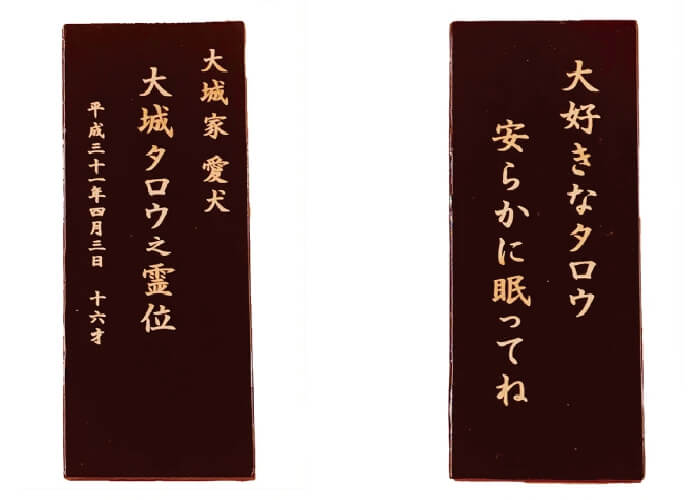 大城家 愛犬
大城タロウ之霊位
平成三十一年四月三日 十六才
大好きなタロウ
安らかに眠ってね